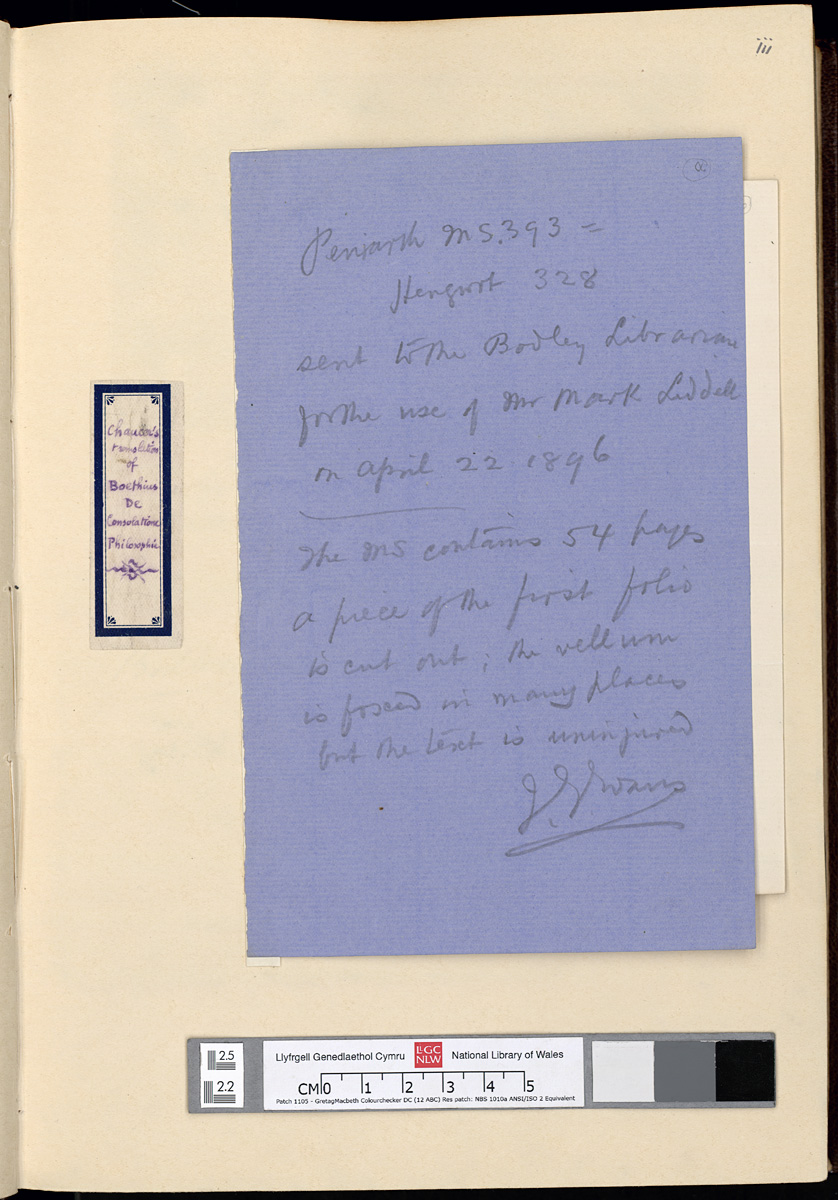 iii
Peniarth MS. 393 =
Hengwrt 328
sent to the Bodley Librarian
for the use of Mr Mark Liddell
on April 22 1896
The MS contains 54 pages
a piece of the first folio
is cut out; the vellum
is foxed in many places
but the text is uninjured
J. G. Evans
Chaucer's
translation
of
Boethius
De
Consolatione
Philosophie
2.5
2.2
Llyfrgell Genedlaethol Cymru LlGC NLW National Library of Wales
CM 0 1 2 3 4 5
Patch 1105 - GretagMacbeth Colourchecker DC (12 ABC) Res patch: NBS 1010a ANSI/ISO 2 Equivalent